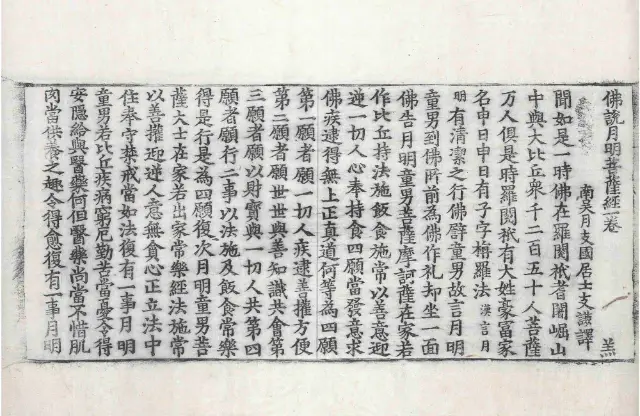 佛說月明菩薩經一卷
南吳月支國居士支謙譯 羔
聞如是一時佛在羅閱祇耆闍崛山
中與大比丘衆千二百五十人菩薩
万人俱是時羅閱祇有大姓豪冨家
名申日申日有子字栴羅法漢言月
明有清潔之行佛臂童男故言月明
童男到佛所前為佛作礼却坐一面
佛告月明童男菩薩摩訶薩在家若
作比丘持法施飯食施常以善意迎
逆一切人心奉持食四願當發意求
佛疾逮得無上正真道何等為四願
第一願者願一切人疾逮善攉方便
第二願者願世世與善知識共會第
三願者願以財寳與一切人共第四
願者願行二事以法施及飯食常樂
得是行是為四願復次月明童男菩
薩大士在家若出家常樂經法施常
以善攉迎逆人意無貪心正立法中
住奉守禁戒當如法復有一事月明
童男若比丘疾病窮厄勤苦當憂令得
安隱給與醫藥何但醫藥尚當不惜肌
肉當供養之趣令得愈復有一事月明